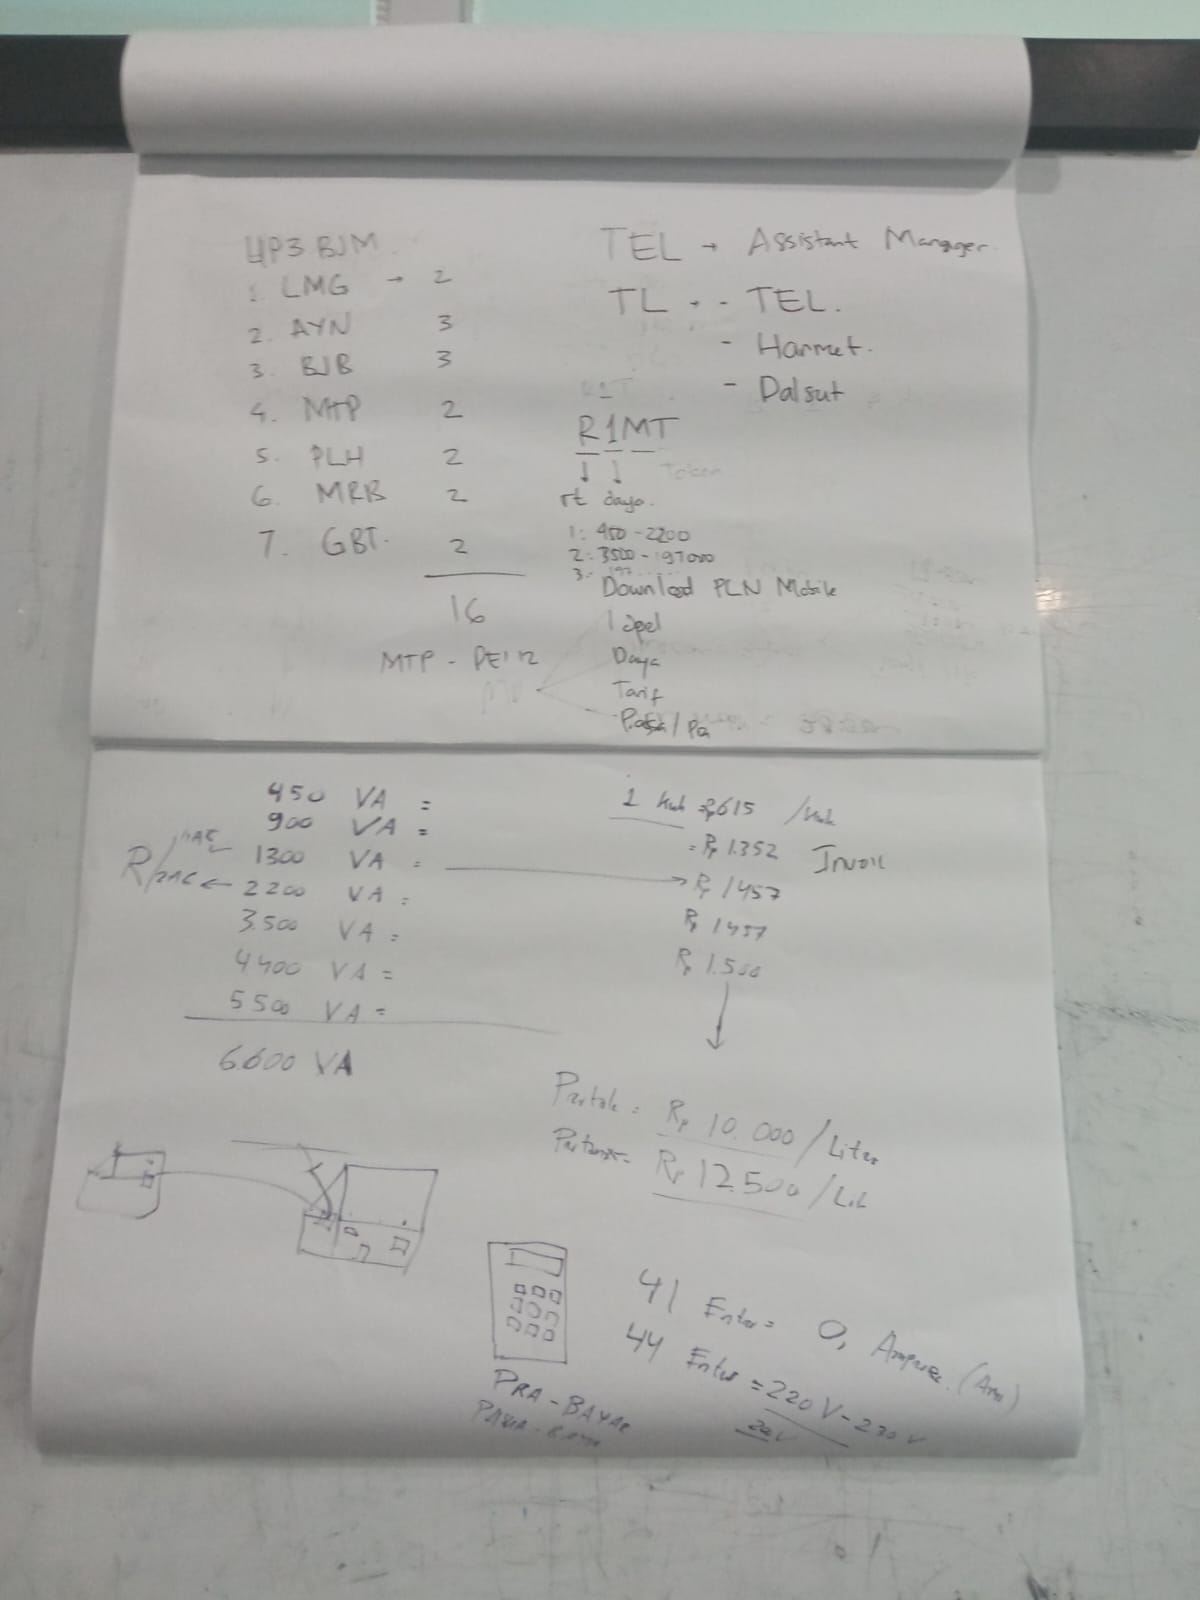 UP3 BJM.
1. LMG → 2
2. AYN 3
3. BJB 3
4. MTP 2
5. PLH 2
6. MRB 2
7. GBT. 2
16
MTP -
TEL → Assistant Manager.
TL → - TEL.
- Harmet.
- Dalsut
R1MT
Token
rt daya.
1: 450 - 2200
2: 3500 - 197000
3. 197
Download PLN Mobile
Idpel
Daya
Tarif
/ Pa
450 VA =
900 VA =
1300 VA =
2200 VA =
3.500 VA =
4400 VA =
5500 VA =
6.600 VA
1 kwh = Rp 615 /kwh
= Rp 1.352
Rp 1457
Rp 1457
Rp
Rp 10.000 / Liter
Rp 12.500 / Lit
41 Enter = 0, Ampere. (Am)
44 Enter = 220 V - 230 V
PRA - BAYAR